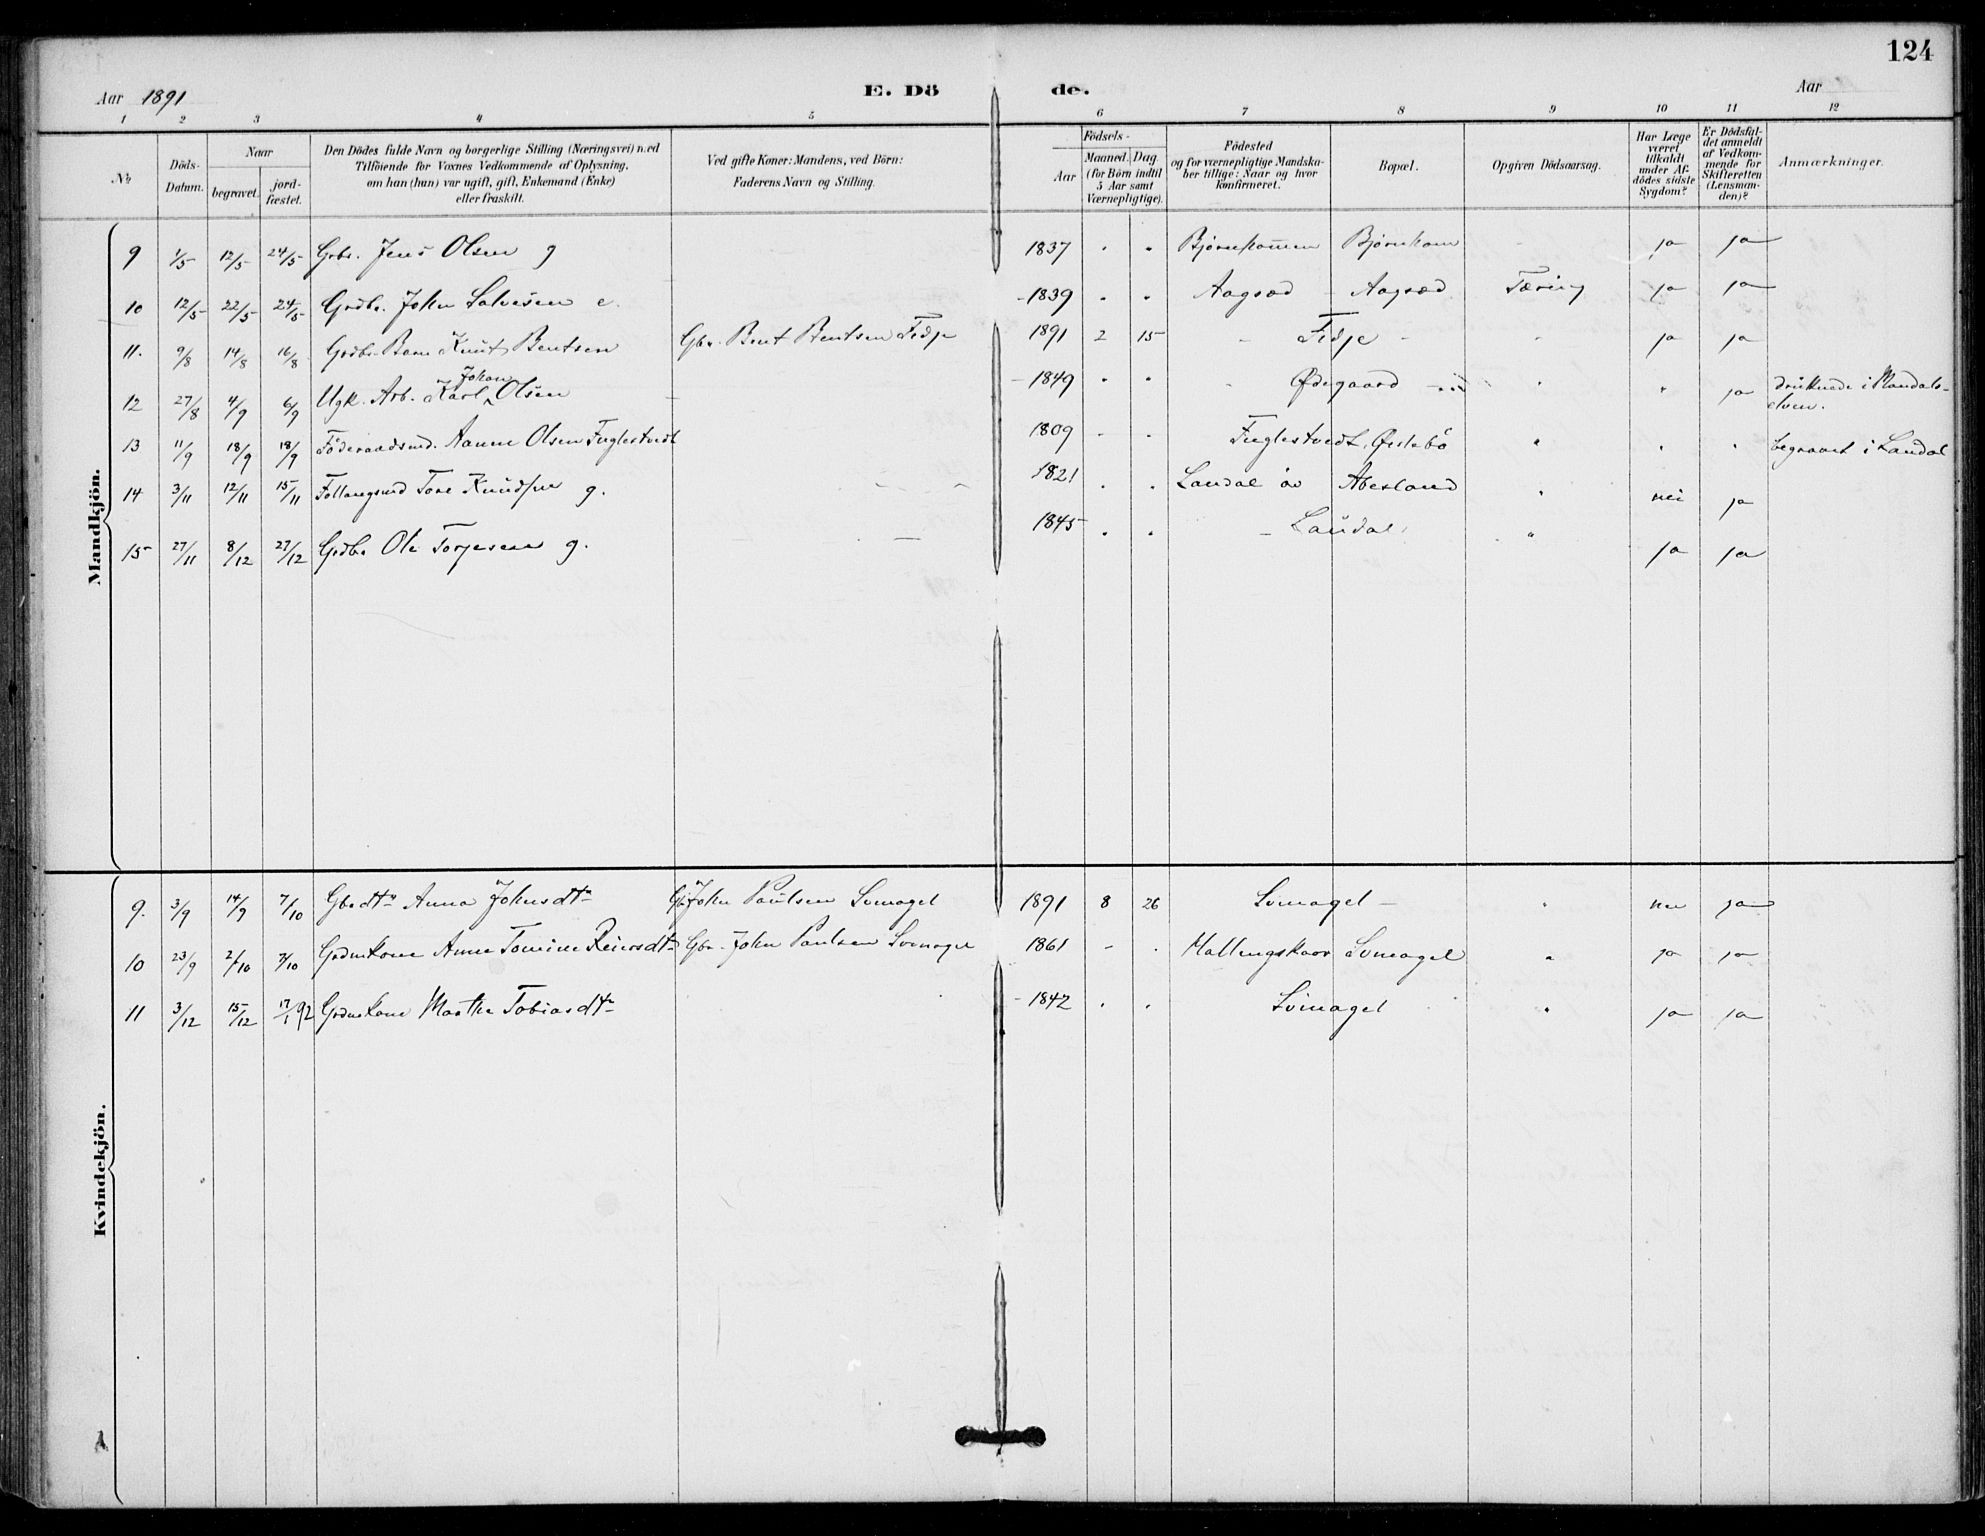 124
Aar 1891 E. Dö de. Aar
1 2 3 4 5 6 7 8 9 10 11 12
No
Döds-Datum.
Naar
begravet.
jord-fæstet.
Den Dödes fulde Navn og borgerlige Stilling (Næringsvei) med
Tilföiende for Voxnes Vedkommende af Oplysning,
om han (hun) var ugift, gift, Enkemand (Enke)
eller fraskilt.
Ved gifte Koner: Mandens, ved Börn:
Faderens Navn og Stilling.
Födsels-
Aar
Maaned. Dag.
(for Börn indtil
5 Aar samt
Værnepligtige).
Födested
og for værnepligtige Mandska-
ber tillige: Naar og hvor
konfirmeret.
Bopæl.
Opgiven Dödsaarsag.
Har Læge
været
tilkaldt
under Af-
dödes sidste
Sygdom?
Er Dödsfal-
det anmeldt
af Vedkom-
mende for
Skifteretten
(Lensman-
den)?
Anmærkninger.
Mandkjön.
9 1/5 12/5 24/5 Grbr. Jens Olsen g 1837 " " Bjørnhommen Bjørnhom - ja ja
10 12/5 22/5 24/5 Grdbr. John Salvesen e. 1839 " " Aagsæd - Aagsæd Tæring ja ja
11. 9/8 14/8 16/8 Grdbr. Barn Knut Bentsen Gbr. Bent Bentsen Fidje 1891 2 15 - Fidje - " ja ja
12 27/8 4/9 6/9 Ugk. Arb. Karl Johan Olsen - 1849 " " - Ødegaard " " ja druknede i Mandals-
elven.
13 11/9 18/9 18/9 Föderaadsmd. Aanen Olsen Fuglestvedt 1809 - " Fuglestvedt, Øislebö " " " begravet i Laudal
14 3/11 12/11 15/11 Tore Knudsen g. 1821 " " Laudal öv Abesland " nei ja
15 27/11 8/12 27/12 Grdbr Ole Torjesen g. - 1845 " " - Laudal " ja ja
Kvindekjön.
9. 3/9 14/9 7/10 Gbr dtr Anna Johnsdtr Gbr John Paulsen Svinagel 1891 8 26 Svinagel - " nei ja
10 23/9 2/10 7/10 Grdmkone Anne Tomine Reiersdtr Gbr. John Paulsen Svinagel 1861 - " Hallingskaar Svinagel " ja ja
11 3/12 15/12 17/1 92 Grdmkone Marthe Tobiasdtr 1842 " " Svinagel " ja ja